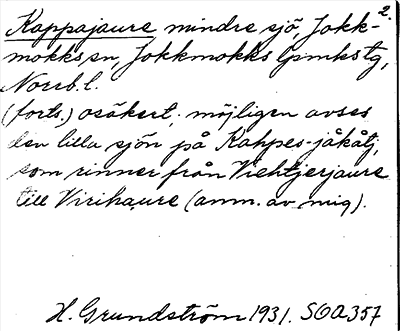 2.
Kappajaure mindre sjö, Jokk-
mokks sn, Jokkmokks lpmkstg,
Norrb. l.
(forts.) osäkert, möjligen avses
den lilla sjön på Kahpes-jåkåtj,
som rinner från Viehtjerjaure
till Virihaure (anm. av mig).
H. Grundström 1931. SOA 357